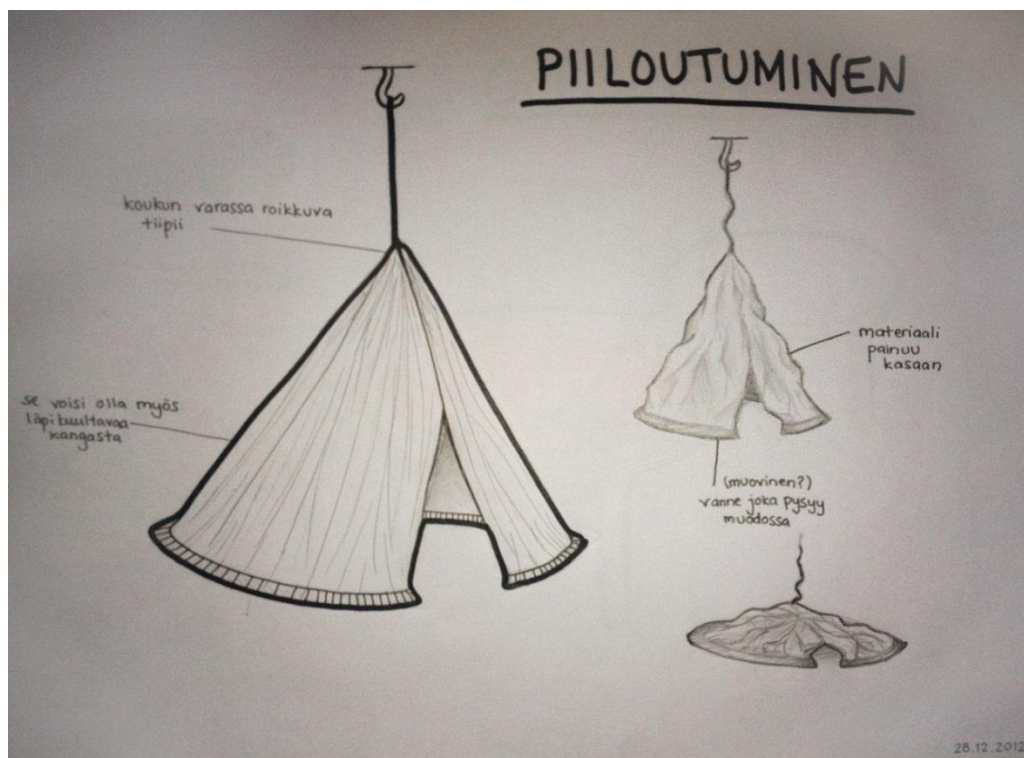 PIILOUTUMINEN
koukun varassa roikkuva
tiipii
se voisi olla myös
läpikuultavaa
kangasta
materiaali
painuu
kasaan
(muovinen?)
vanne joka pysyy
muodossa
28.12.2012